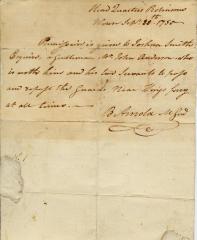 Head Quarters Robinsons
House Sepr. 20th 1780
Permission is given to Joshua Smith
Esquire, a gentleman Mr. John Anderson who
is with him and his two Servants to pass
and repass the Guards Near Kings Ferry
at all times.
B Arnold M Genl